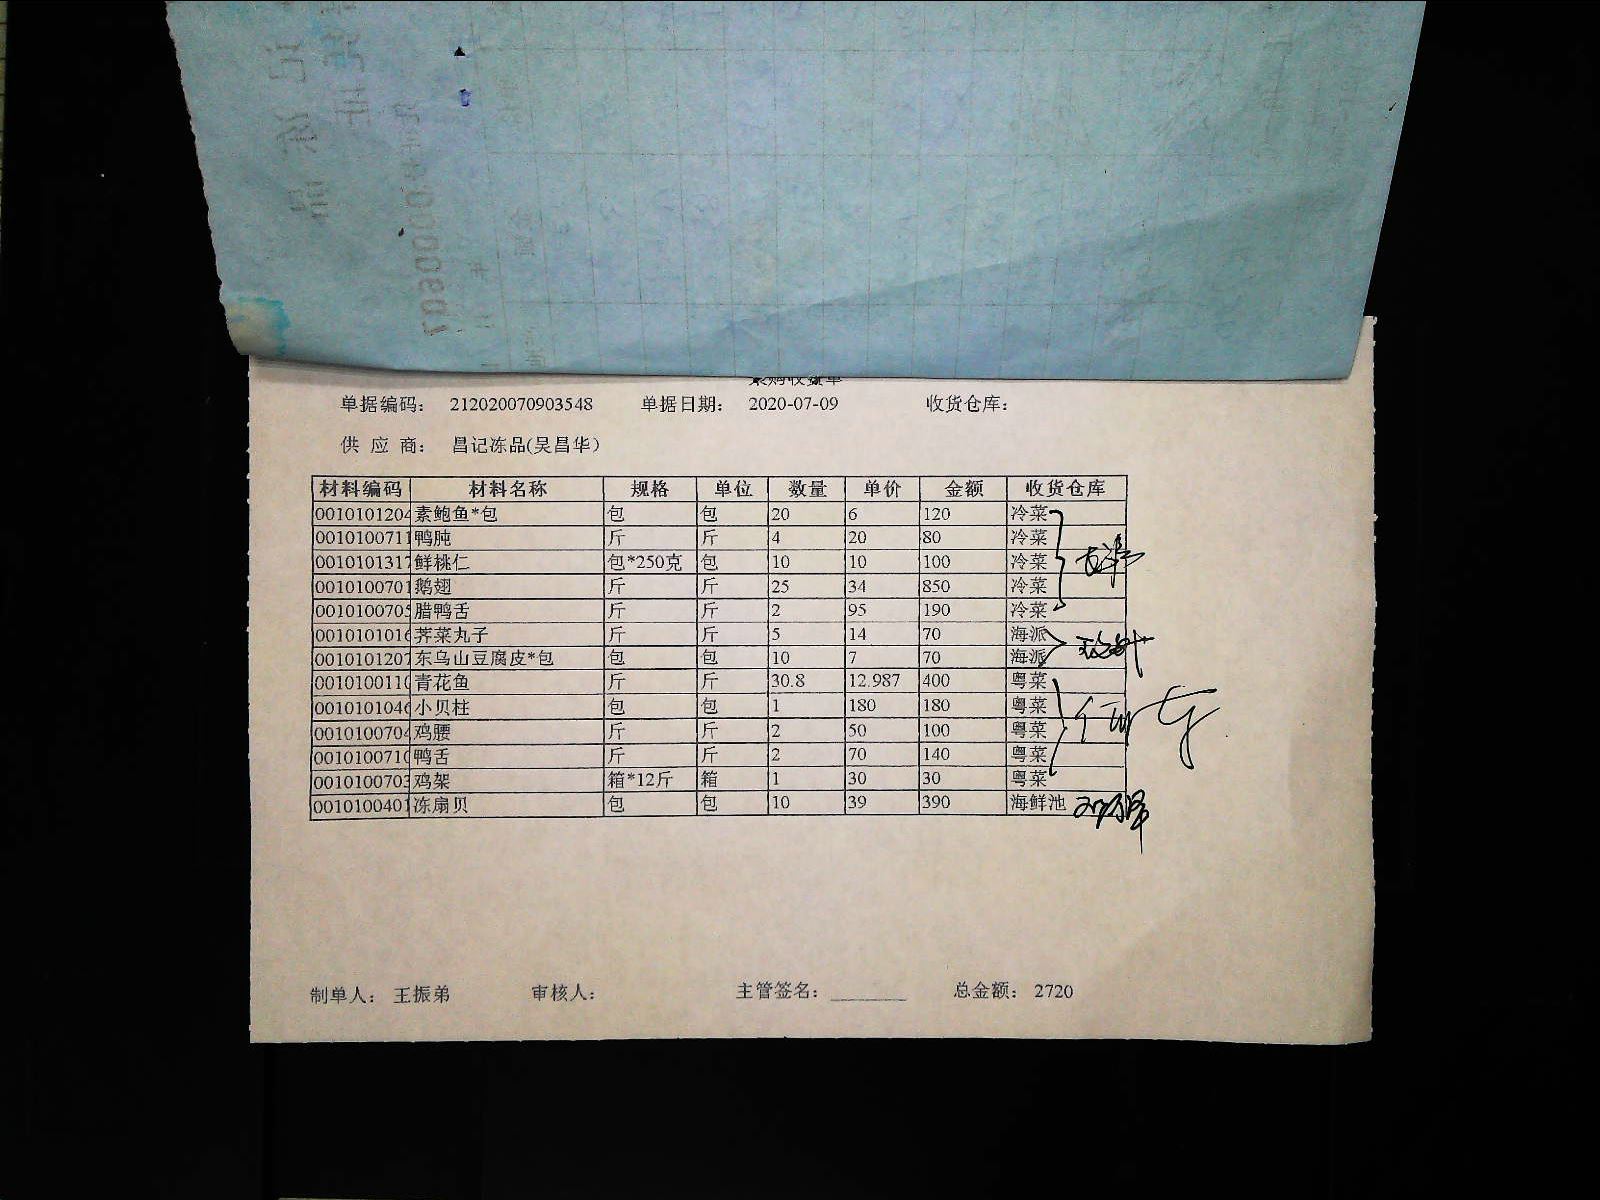 采购收货单
单据编码： 212020070903548 单据日期： 2020-07-09 收货仓库：
供 应 商： 昌记冻品(吴昌华)
材料编码 材料名称 规格 单位 数量 单价 金额 收货仓库
0010101204 素鲍鱼*包 包 包 20 6 120 冷菜
0010100711 鸭肫 斤 斤 4 20 80 冷菜
0010101317 鲜桃仁 包*250克 包 10 10 100 冷菜
0010100701 鹅翅 斤 斤 25 34 850 冷菜
0010100705 腊鸭舌 斤 斤 2 95 190 冷菜
0010101016 荠菜丸子 斤 斤 5 14 70 海派
0010101207 东乌山豆腐皮*包 包 包 10 7 70 海派
0010100110 青花鱼 斤 斤 30.8 12.987 400 粤菜
0010101046 小贝柱 包 包 1 180 180 粤菜
0010100704 鸡腰 斤 斤 2 50 100 粤菜
0010100710 鸭舌 斤 斤 2 70 140 粤菜
0010100703 鸡架 箱*12斤 箱 1 30 30 粤菜
0010100401 冻扇贝 包 包 10 39 390 海鲜池
制单人： 王振弟 审核人： 主管签名： 总金额： 2720